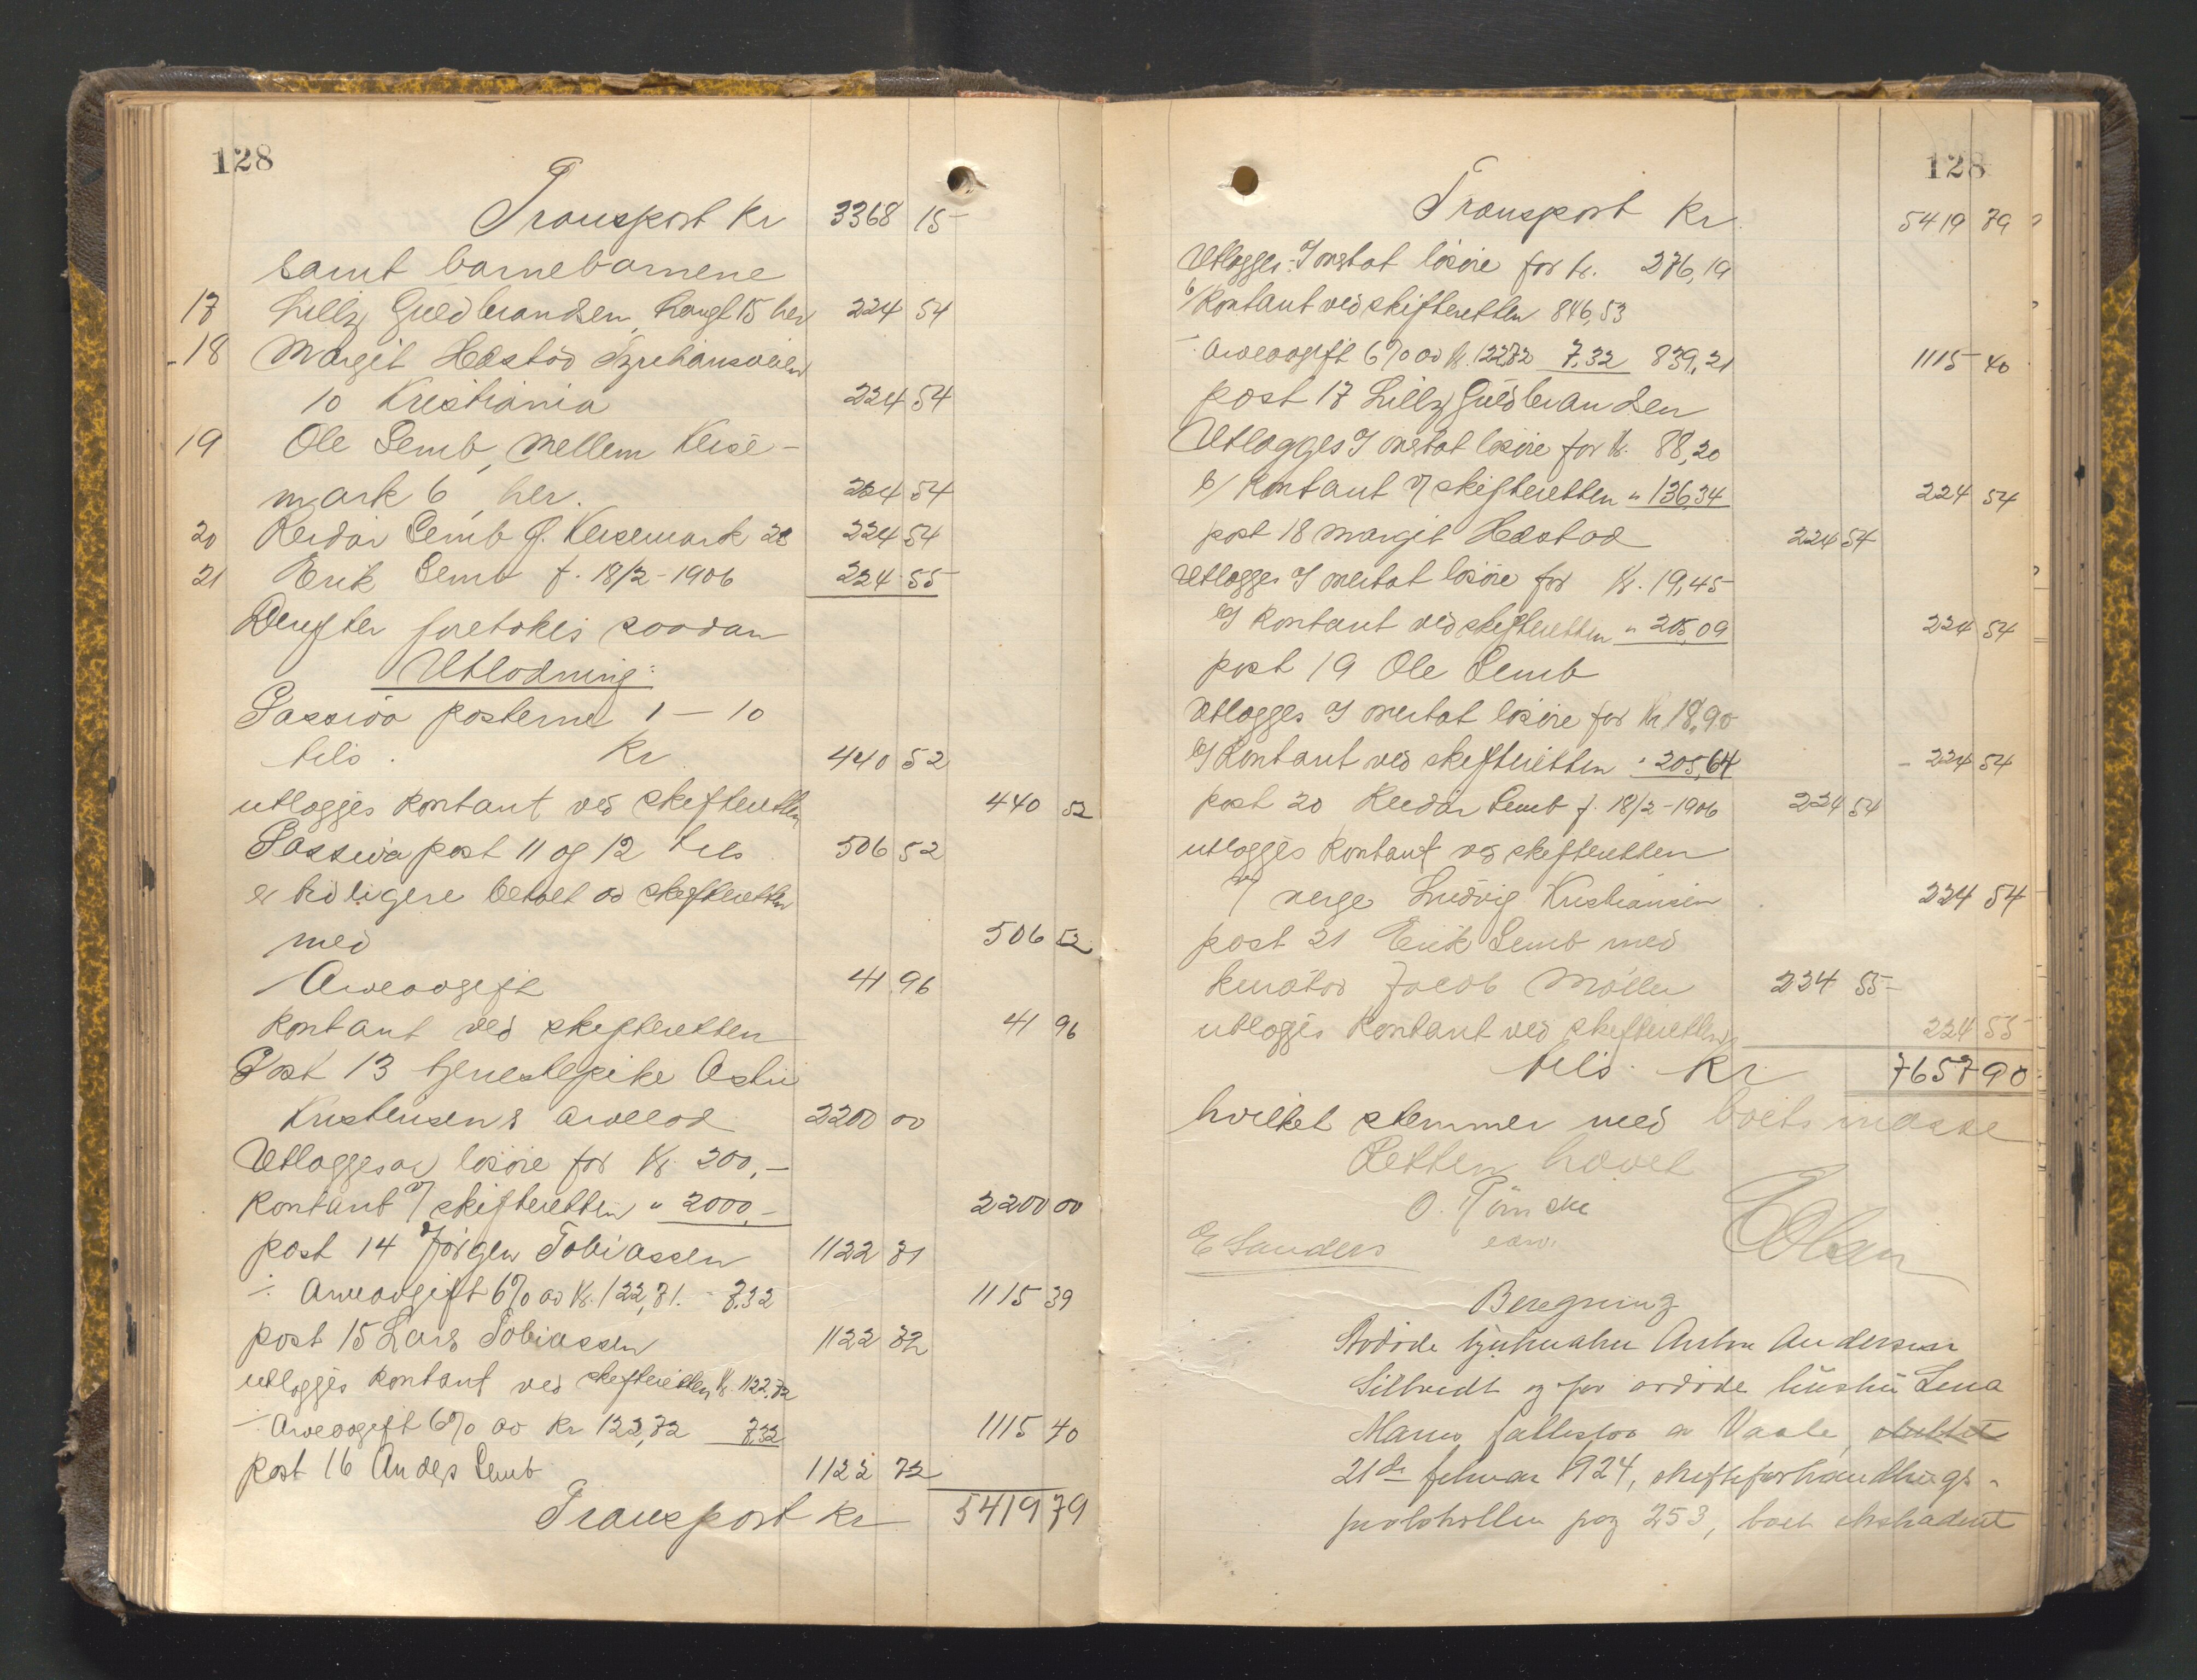 128
Transport Kr 3368 15
samt barnebarnene
17 Lilly Guldbrandsen, Langt 15 her 224 54
18 Margit Hæstød
10 Kristiania 224 54
19 Ole Semb, Mellem Keise-
mark 6, her. 224 54
20 Reidar Semb Ø. Keisemark 28 224 54
21 Erik Semb f. 18/2-1906 224 55
Derefter foretokes saadan
Utlodning:
Passiva posterne 1 – 10
tils. Kr 440 52
utlægges kontant ved skifteretten 440 52
Passiva post 11 og 12 tils 506 52
er tidligere betalt av skifteretten
med 506 52
Arveavgift 41 96
kontant ved skifteretten 41 96
Post 13 tjenestepike Astri
Kristensens arvelod 2200 00
Utlægges av løsøre for Kr. 200,-
kontant v/ skifteretten " 2000,- 2200 00
post 14 Jørgen Tobiassen 1122 71
÷ Arveavgift 6% av Kr. 122,71. - 7.32 1115 39
post 15 Lars Tobiassen 1122 72
utlægges kontant ved skifteretten Kr. 1122.72
÷ Arveavgift 6% av Kr 122,72 7.32 1115 40
post 16 Anders Semb 1122 72
Transport Kr 5419 79
128
Transport Kr. 5419 79
Utlægges: I mottat løsøre for kr. 276,19
b/ Kontant ved skifteretten 846,53
÷ Arveavgift 6% av Kr. 122.72 7,32 839,21 1115 40
post 17 Lilly Guldbrandsen
Utlægges I mottat løsøre for Kr. 88,20
b/ Kontant v/ skifteretten " 136,34 224 54
post 18 Margit Hæstød 224 54
Utlægges I mottat løsøre for Kr. 19,45
b/ Kontant ved skifteretten " 205,09 224 54
post 19 Ole Semb
Utlægges I mottat løsøre for Kr 18,90
b/ Kontant ved skifteretten " 205,64 224 54
post 20 Reidar Semb f. 18/2-1906 224 54
utlægges kontant ved skifteretten
v/ verge Ludvig Kristiansen 224 54
post 21 Erik Semb med
kurator Jacob Møller 224 55
utlægges kontant ved skifteretten 224 55
tils. Kr. 7657 90
hvilket stemmer med boets masse
Retten hævet
E Sanders
Beregning
Avdøde Anton Andersen
og før avdøde hustru Lena
Marie fællesbo av Vaale, sluttet
21de februar 1924, skifteforhandlings-
protokollen pag 253, boet